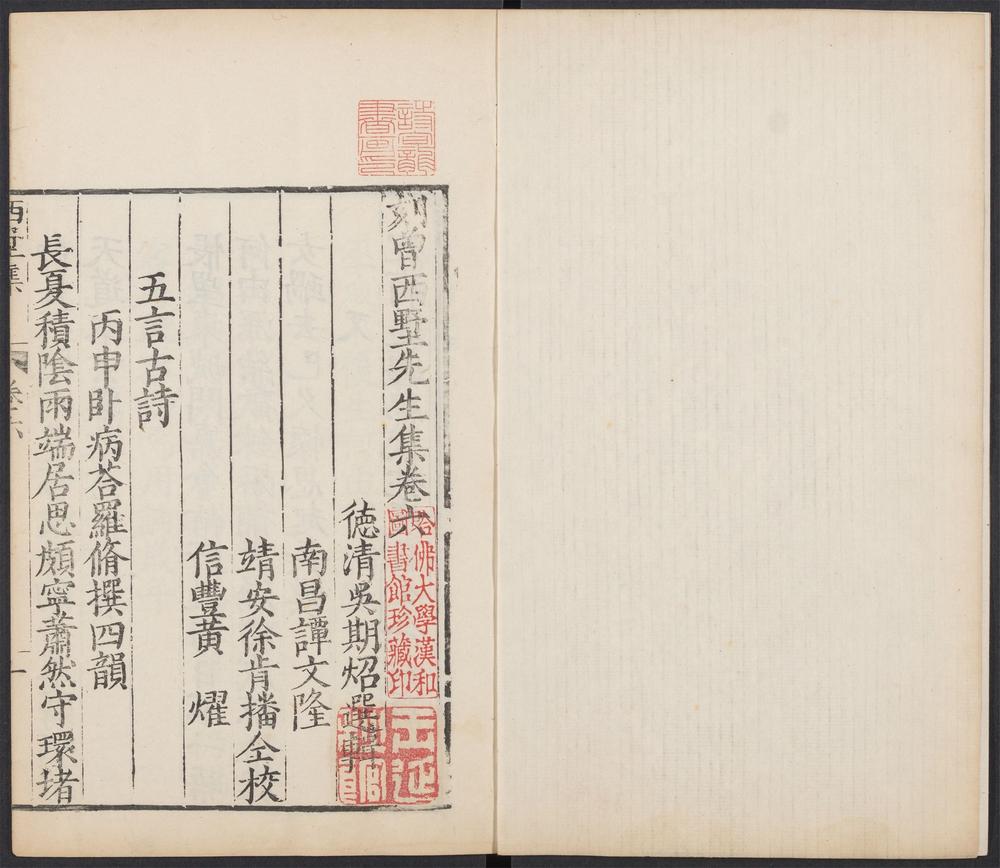 刻曾西墅先生集卷六
德清吳期炤選輯
南昌譚文隆
靖安徐肯播仝校
信豐黄　燿
五言古詩
丙申卧病荅羅脩撰四韻
長夏積陰雨端居思頗寧蕭然守環堵
西墅集
卷六
一
哈佛大學漢和
圖書館珍藏印
詩龕
書畫印